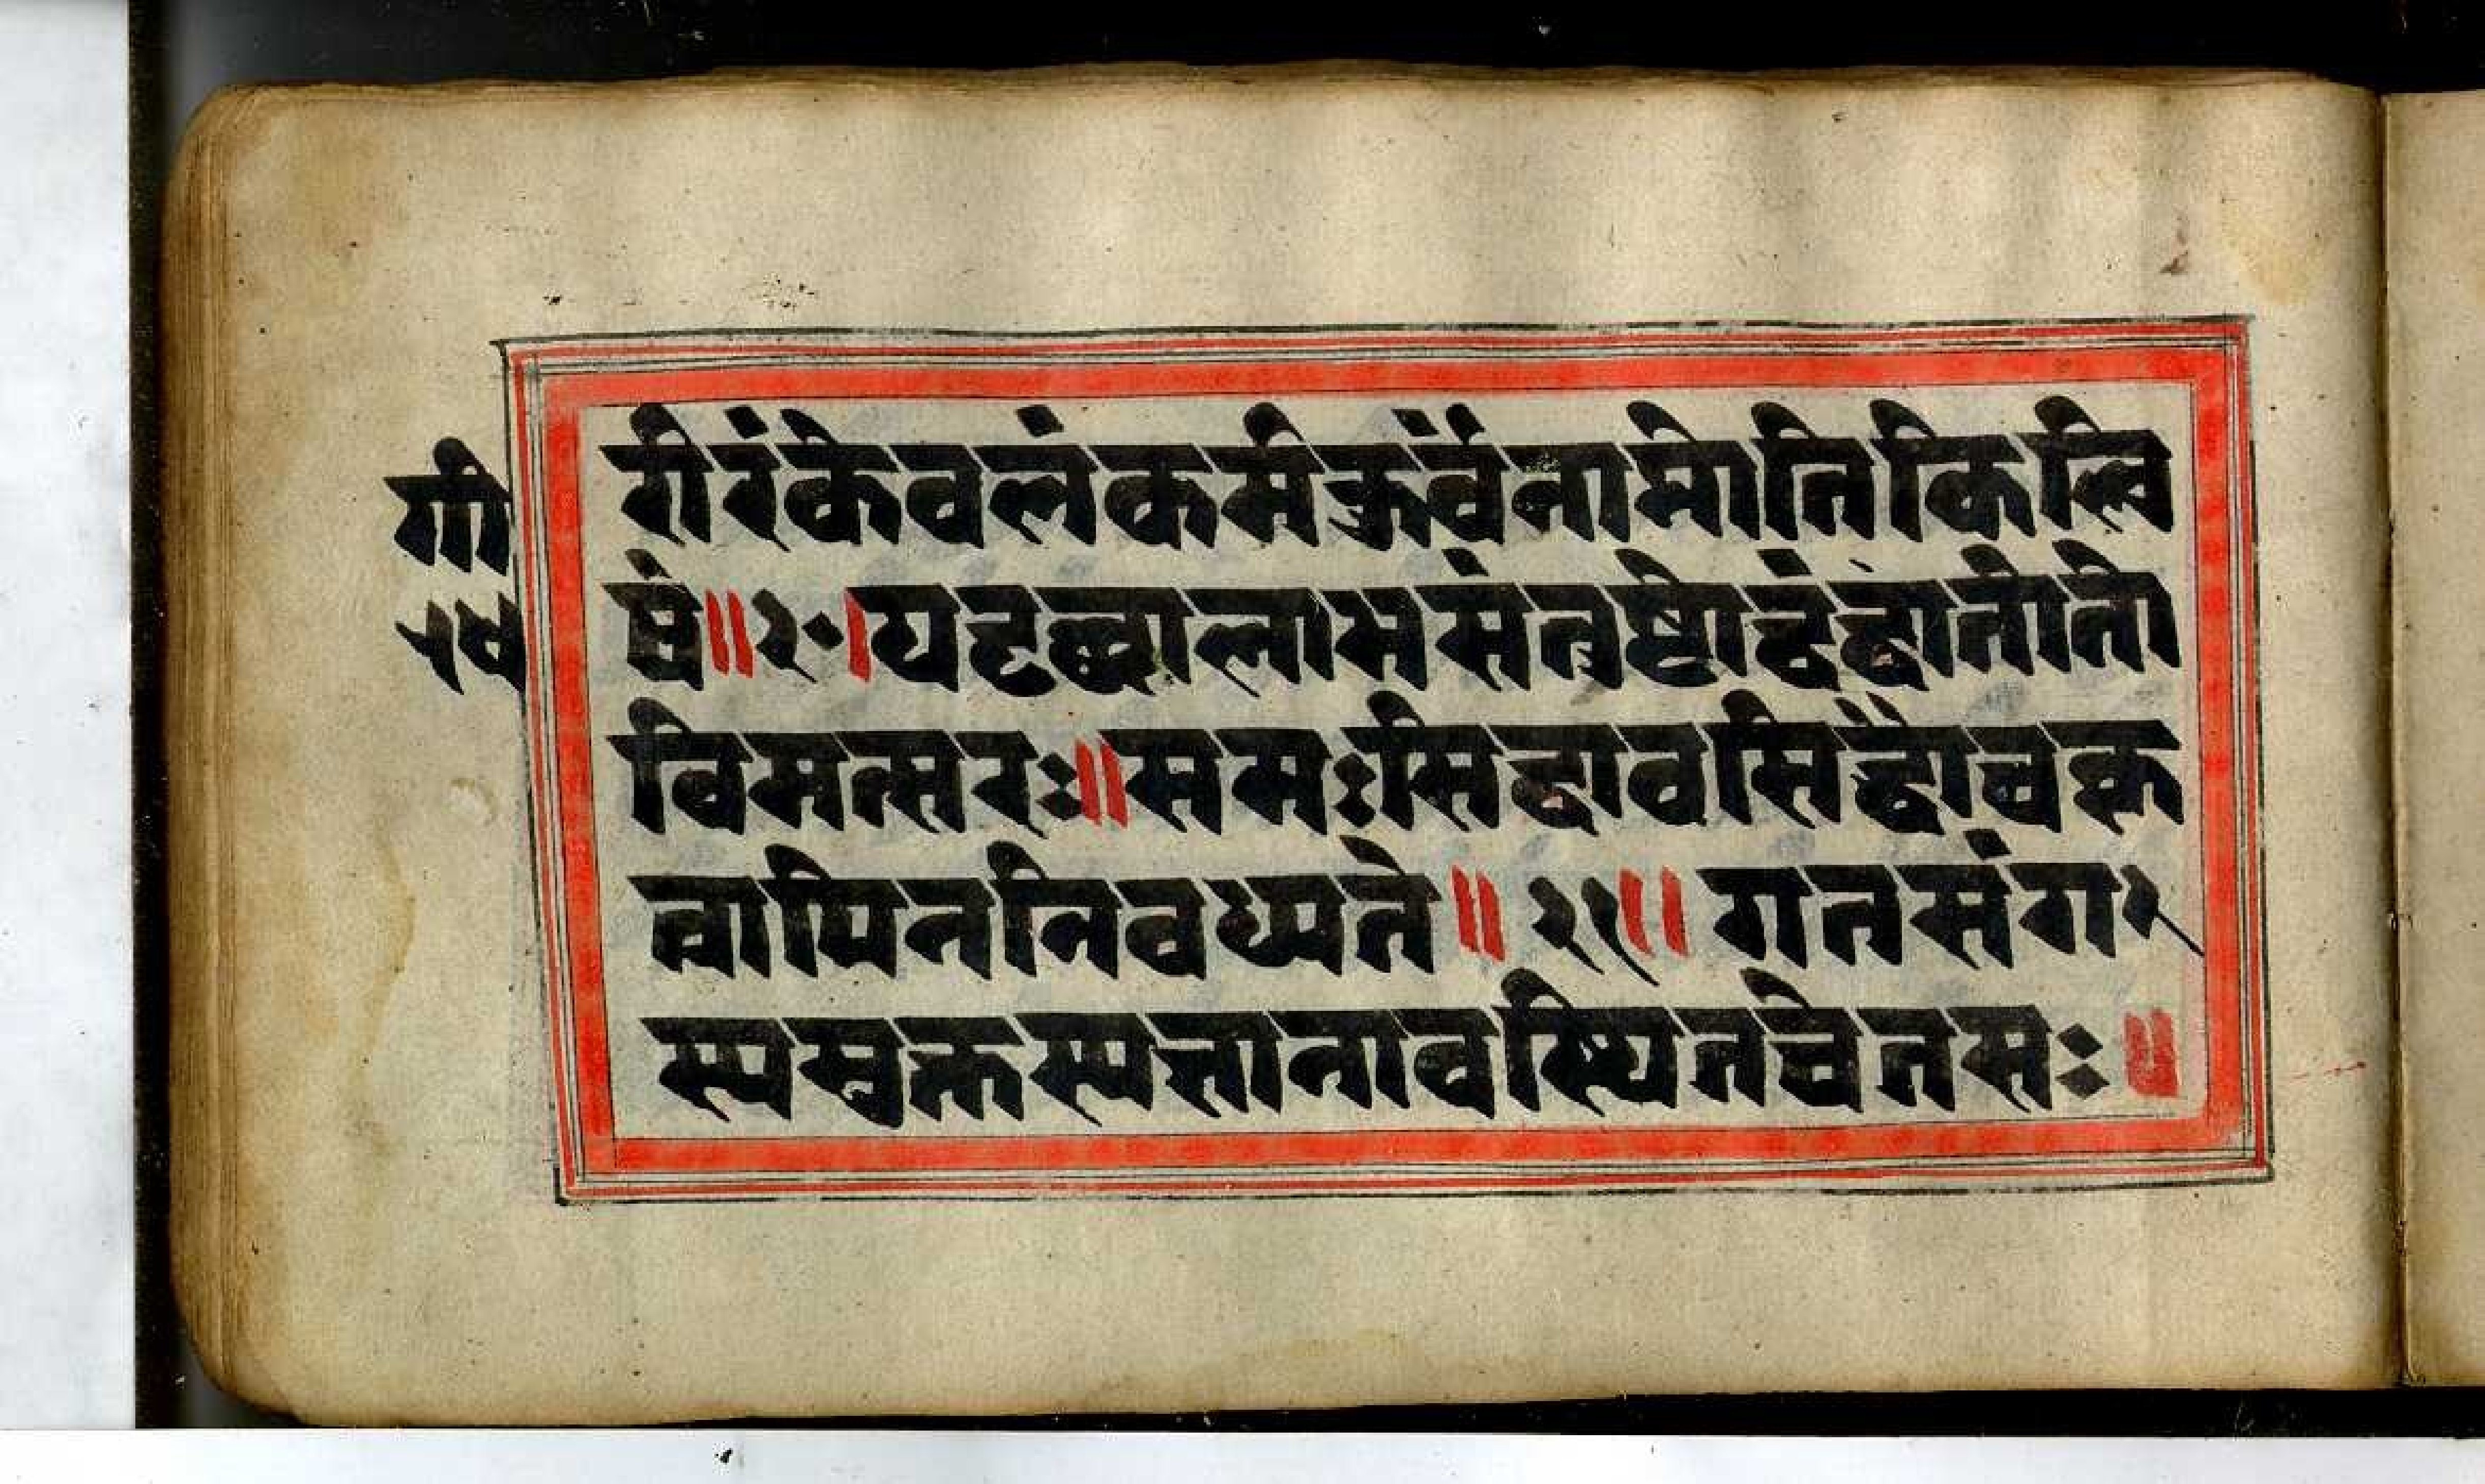 गी
५४
रीरंकेवलंकर्मकुर्वंनाप्नोतिकिल्वि
षं॥२०।यदृछालाभसंतुष्टोद्वंद्वातीतो
विमत्सरः॥समःसिद्धावसिद्धौचकृ
त्वापिननिवध्यते॥२२॥गतसंग२
स्यमुक्तस्यज्ञानावस्थितचेतसः॥